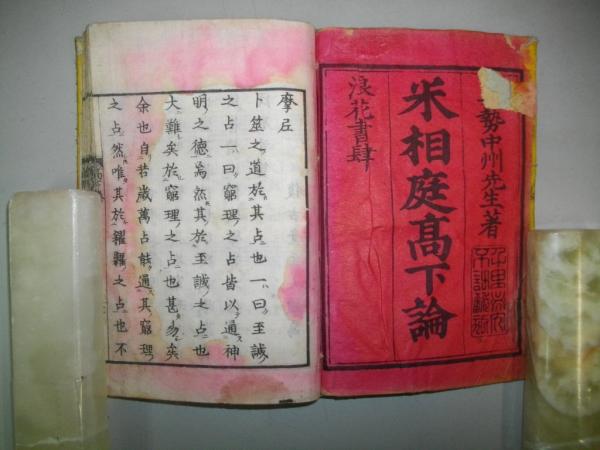 勢中州先生著
米相庭高下論
浪花書肆
序
卜筮之道於其占也一曰至誠
之占一曰窮理之占皆以通神
明之德為然其於至誠之占也
大難矣於窮理之占也甚易矣
余也自若歲萬占能通其窮理
之占然唯其於糴糶之占也不